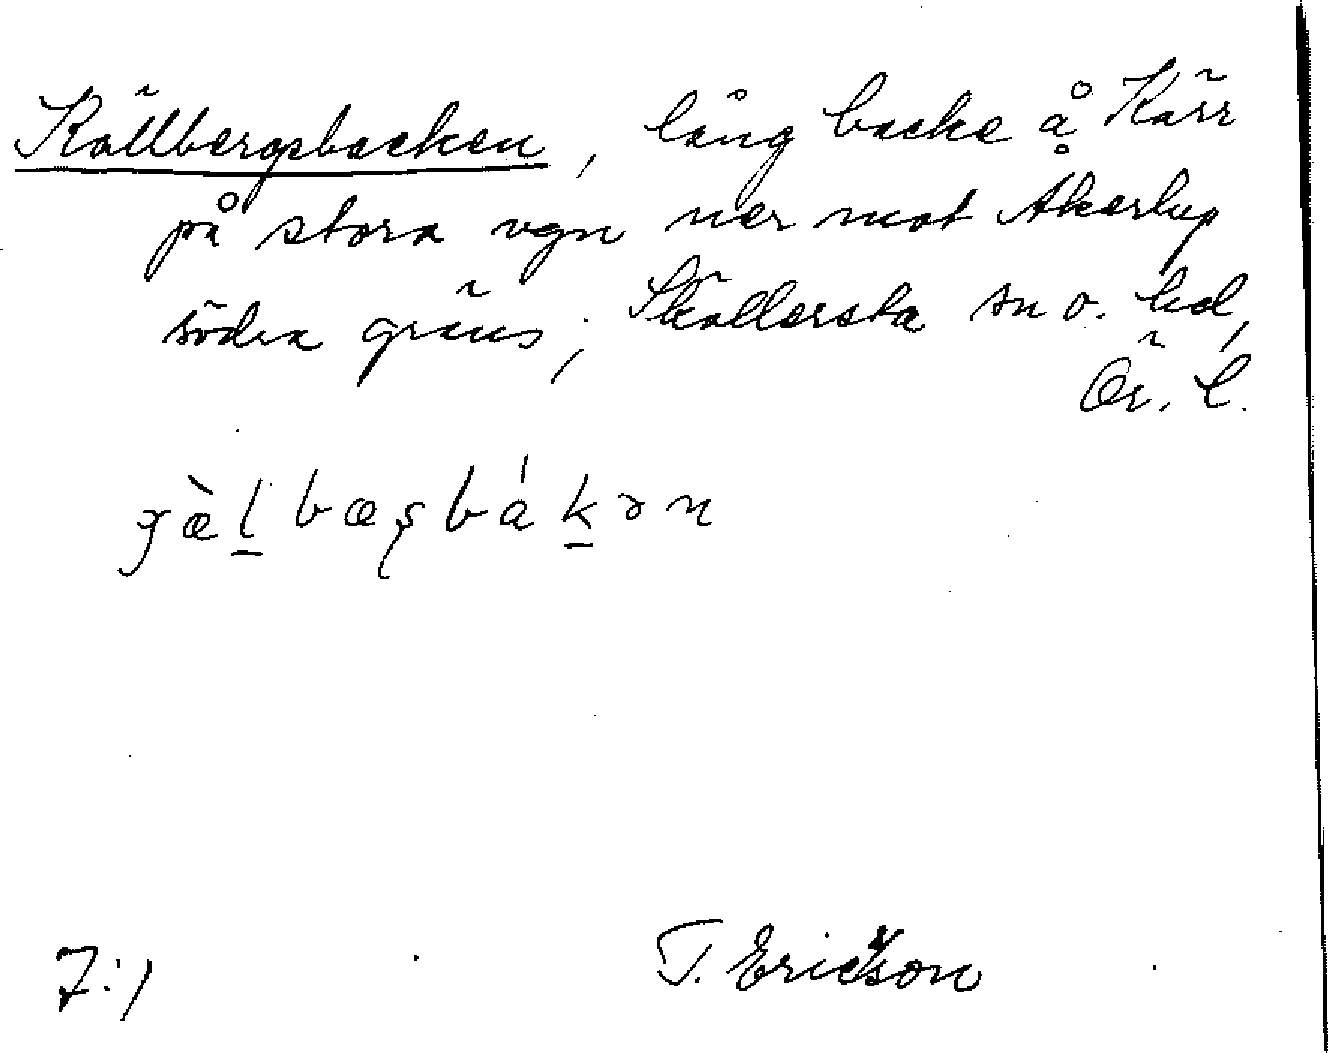 Källbergsbacken, lång backe å Kärr
på stora vgn ner mot Åkerby
södra gräns; Sköllersta sn o. hd,
Ör. l.
7:1 T. Ericsson